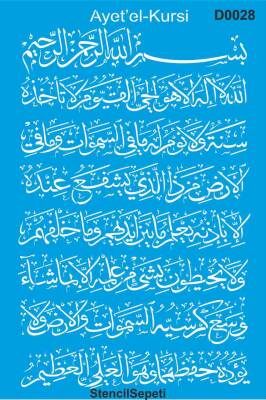 Ayet'el-Kursi D0028
بسم الله الرحمن الرحيم
الله لا اله الا هو الحي القيوم لا تأخذه
سنة ولا نوم له ما في السموات وما في
الارض من ذا الذي يشفع عنده
الا باذنه يعلم ما بين ايديهم وما خلفهم
ولا يحيطون بشئ من علمه الا بما شاء
وسع كرسيه السموات والارض ولا
يؤده حفظهما وهو العلي العظيم
StencilSepeti